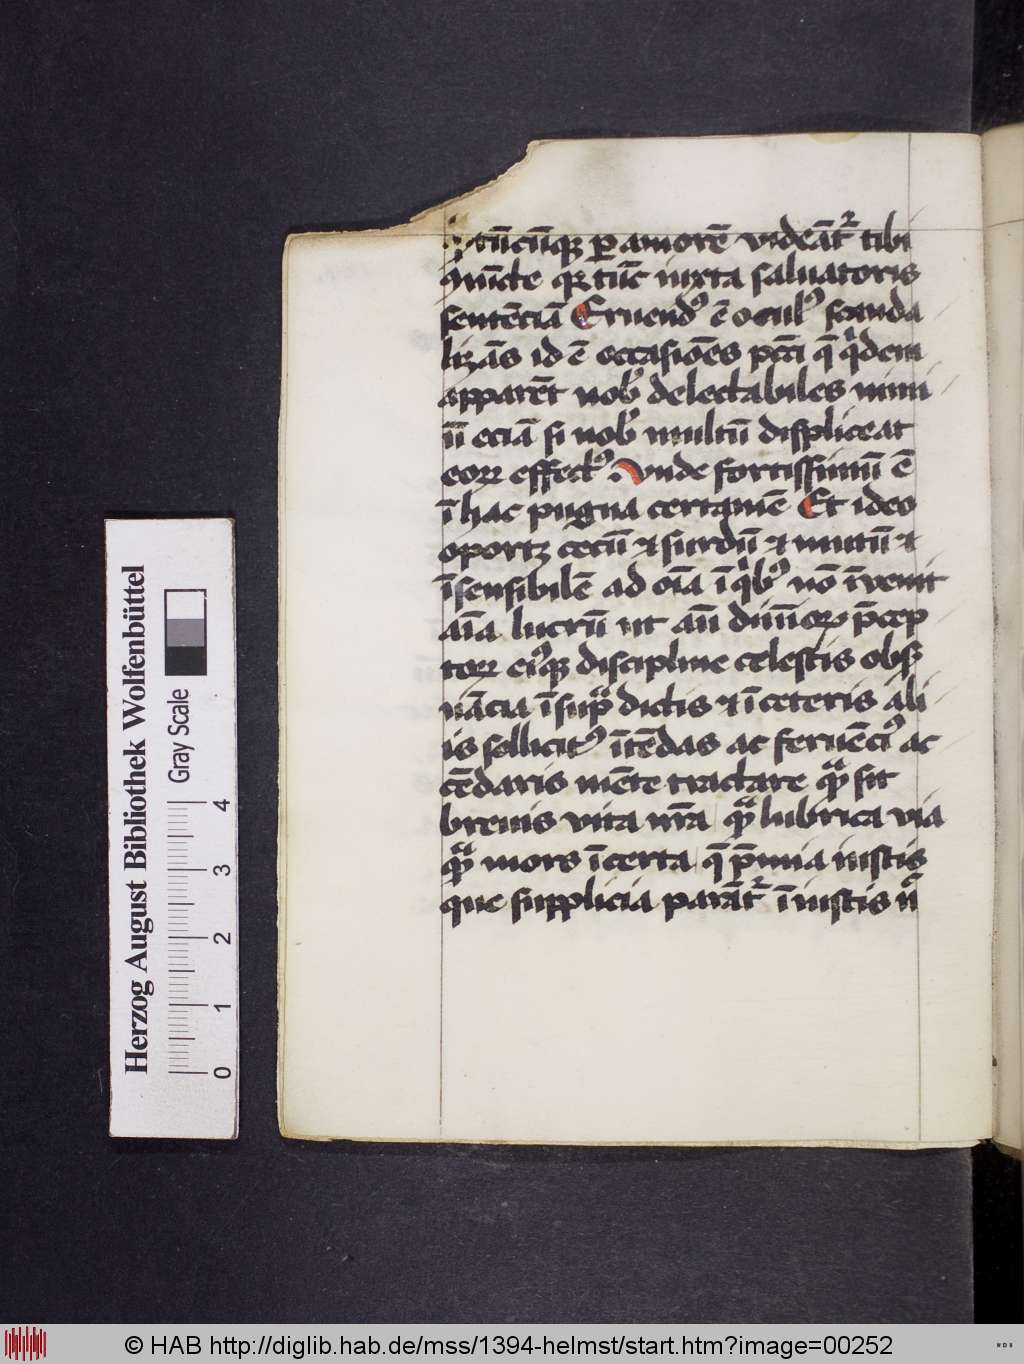 tūcūq̄ ꝑ amorē videāt᷑ tibi
9iūcte qꝛ tūc iuxta saluatoris
sentēciā Eruendꝰ ē oculꝰ scanda
lizās id ē occasiōes pcc̄i q̄ qͥdem
apparēt nob̄ delectabiles nimi
ū eciā si nob̄ multū displiceat
eoꝝ effectꝰ Vnde fortissimū ē
ī hac pugna certamē Et ideo
oportꝫ cecū ⁊ surdū ⁊ mutū ⁊
īsensibilē ad oīa ī qͥbꝰ nō īvenit
aīa lucrū ut diuīoꝝ p̄cep
toꝝ eiꝰqꝫ discipline celestis obẜ
uācia ī supͣ dictis ⁊ ī ceteris ali
is sollicitꝰ ītēdas ac feruēciꝰ ac
cēdaris mēte tractare qͣ̄ sit
breuis vita nr̄a qͣ̄ lubrica via
qͣ̄ mors īcerta q̄ p̄mia iustis
que supplicia parāt᷑ īiustis
Herzog August Bibliothek Wolfenbüttel
Gray Scale
0 1 2 3 4
© HAB http://diglib.hab.de/mss/1394-helmst/start.htm?image=00252